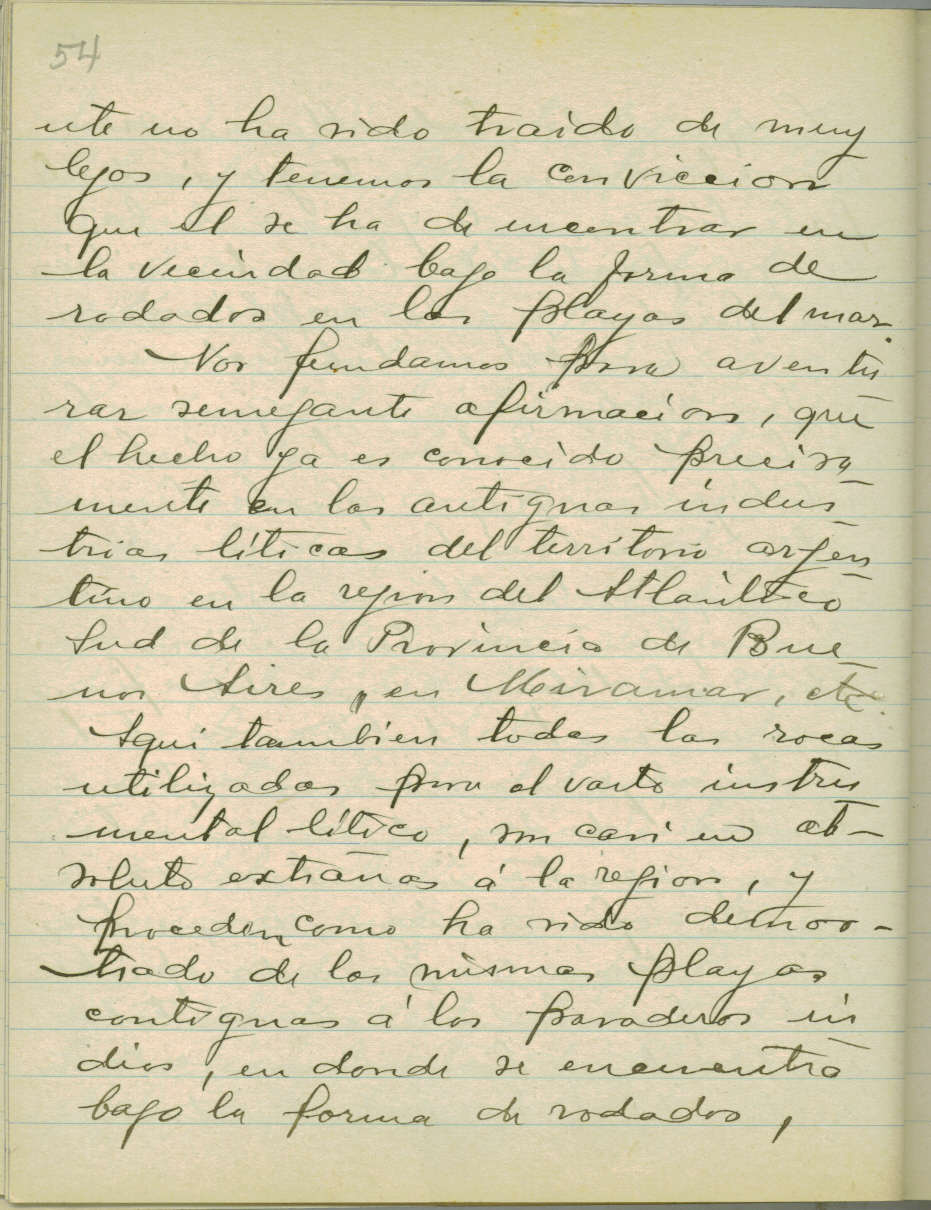 54
nte no ha sido traido de muy
lejos, y tenemos la conviccion
que el se ha de encontrar en
la vecindad bajo la forma de
rodados en las playas del mar.
Nos fundamos para aventu
rar semejante afirmacion, que
el hecho ya es conocido precisa
mente en las antiguas indus
trias líticas del territorio argen
tino en la region del Atlántico
Sud de la Provincia de Bue
nos Aires, en Miramar, etc.
Aqui tambien todas las rocas
utilizadas para el vasto instru
mental lítico, son casi en ab-
soluto extrañas á la region, y
proceden como ha sido demos-
trado de las mismas playas
contiguas á los paraderos in
dios, en donde se encuentra
bajo la forma de rodados,